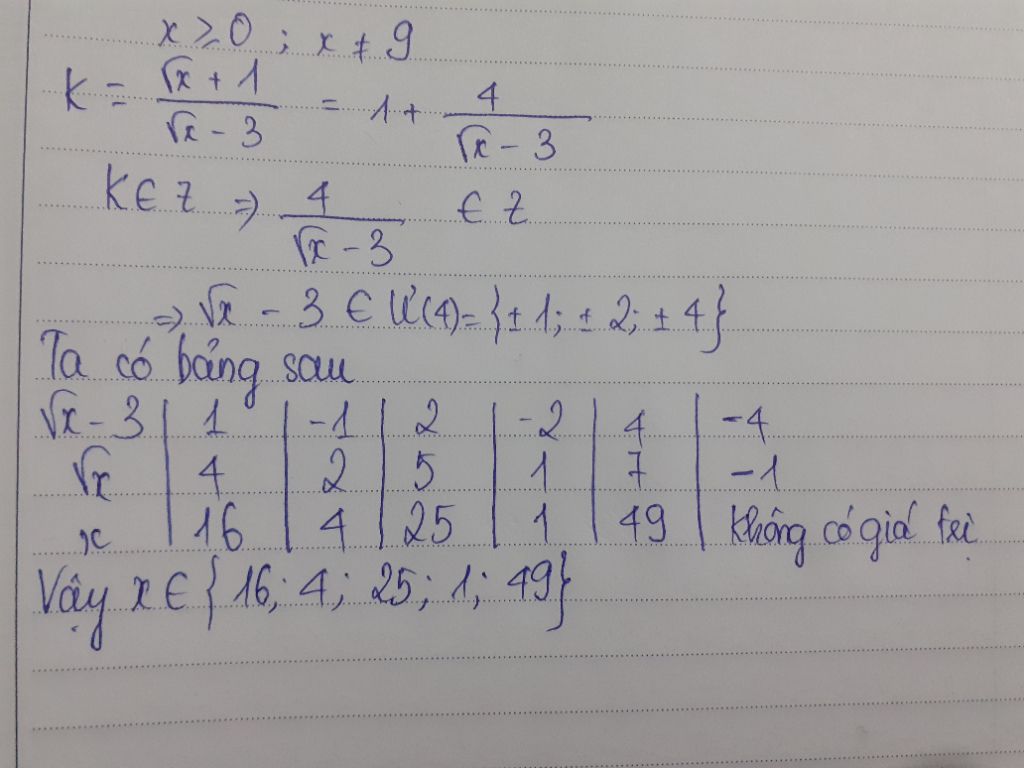 x ≥ 0 ; x ≠ 9
K = (√x + 1)/(√x - 3) = 1 + 4/(√x - 3)
K ∈ Z ⇒ 4/(√x - 3) ∈ Z
⇒ √x - 3 ∈ Ư(4) = {± 1; ± 2; ± 4}
Ta có bảng sau
√x - 3 | 1 | -1 | 2 | -2 | 4 | -4
√x | 4 | 2 | 5 | 1 | 7 | -1
x | 16 | 4 | 25 | 1 | 49 | không có giá trị
Vậy x ∈ {16; 4; 25; 1; 49}